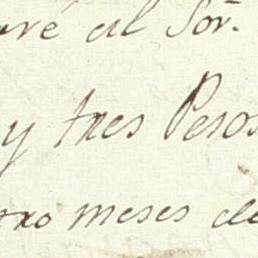 aré al Sor.
y tres Pesos
tro meses de